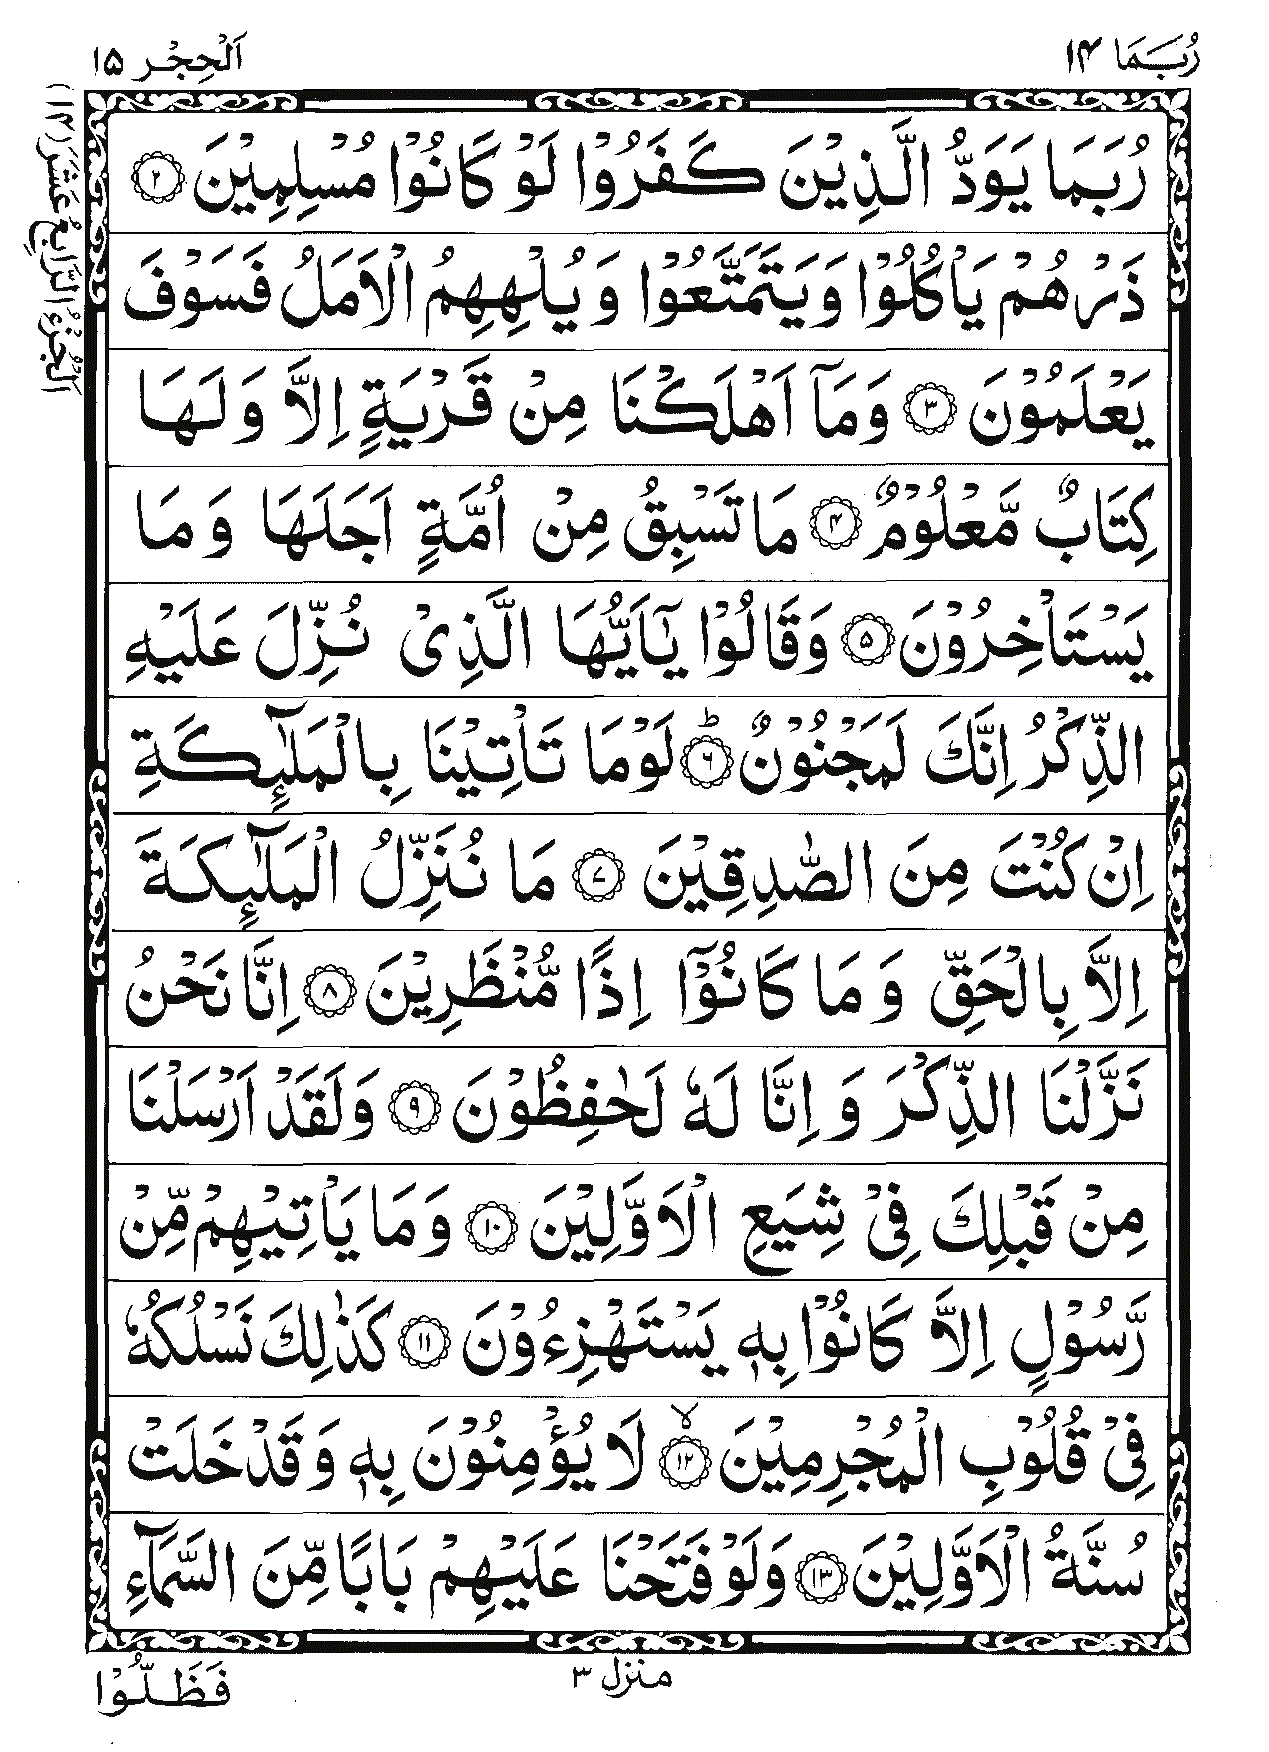 رُبَمَا ۱۴
اَلْحِجْر ۱۵
اَلْجُزْءُ الرَّابِعُ عَشَرَ (۱۴)
رُبَمَا يَوَدُّ الَّذِيْنَ كَفَرُوْا لَوْ كَانُوْا مُسْلِمِيْنَ ۲
ذَرْهُمْ يَاْكُلُوْا وَيَتَمَتَّعُوْا وَيُلْهِهِمُ الْاَمَلُ فَسَوْفَ
يَعْلَمُوْنَ ۳ وَمَآ اَهْلَكْنَا مِنْ قَرْيَةٍ اِلَّا وَلَهَا
كِتَابٌ مَّعْلُوْمٌ ۴ مَا تَسْبِقُ مِنْ اُمَّةٍ اَجَلَهَا وَمَا
يَسْتَاْخِرُوْنَ ۵ وَقَالُوْا يٰٓاَيُّهَا الَّذِىْ نُزِّلَ عَلَيْهِ
الذِّكْرُ اِنَّكَ لَمَجْنُوْنٌ ؕ ۶ لَوْمَا تَاْتِيْنَا بِالْمَلٰٓئِكَةِ
اِنْ كُنْتَ مِنَ الصّٰدِقِيْنَ ۷ مَا نُنَزِّلُ الْمَلٰٓئِكَةَ
اِلَّا بِالْحَقِّ وَمَا كَانُوْٓا اِذًا مُّنْظَرِيْنَ ۸ اِنَّا نَحْنُ
نَزَّلْنَا الذِّكْرَ وَاِنَّا لَهٗ لَحٰفِظُوْنَ ۹ وَلَقَدْ اَرْسَلْنَا
مِنْ قَبْلِكَ فِىْ شِيَعِ الْاَوَّلِيْنَ ۱۰ وَمَا يَاْتِيْهِمْ مِّنْ
رَّسُوْلٍ اِلَّا كَانُوْا بِهٖ يَسْتَهْزِءُوْنَ ۱۱ كَذٰلِكَ نَسْلُكُهٗ
فِىْ قُلُوْبِ الْمُجْرِمِيْنَ ۙ ۱۲ لَا يُؤْمِنُوْنَ بِهٖ وَقَدْ خَلَتْ
سُنَّةُ الْاَوَّلِيْنَ ۱۳ وَلَوْ فَتَحْنَا عَلَيْهِمْ بَابًا مِّنَ السَّمَآءِ
منزل ۳
فَظَلُّوْا